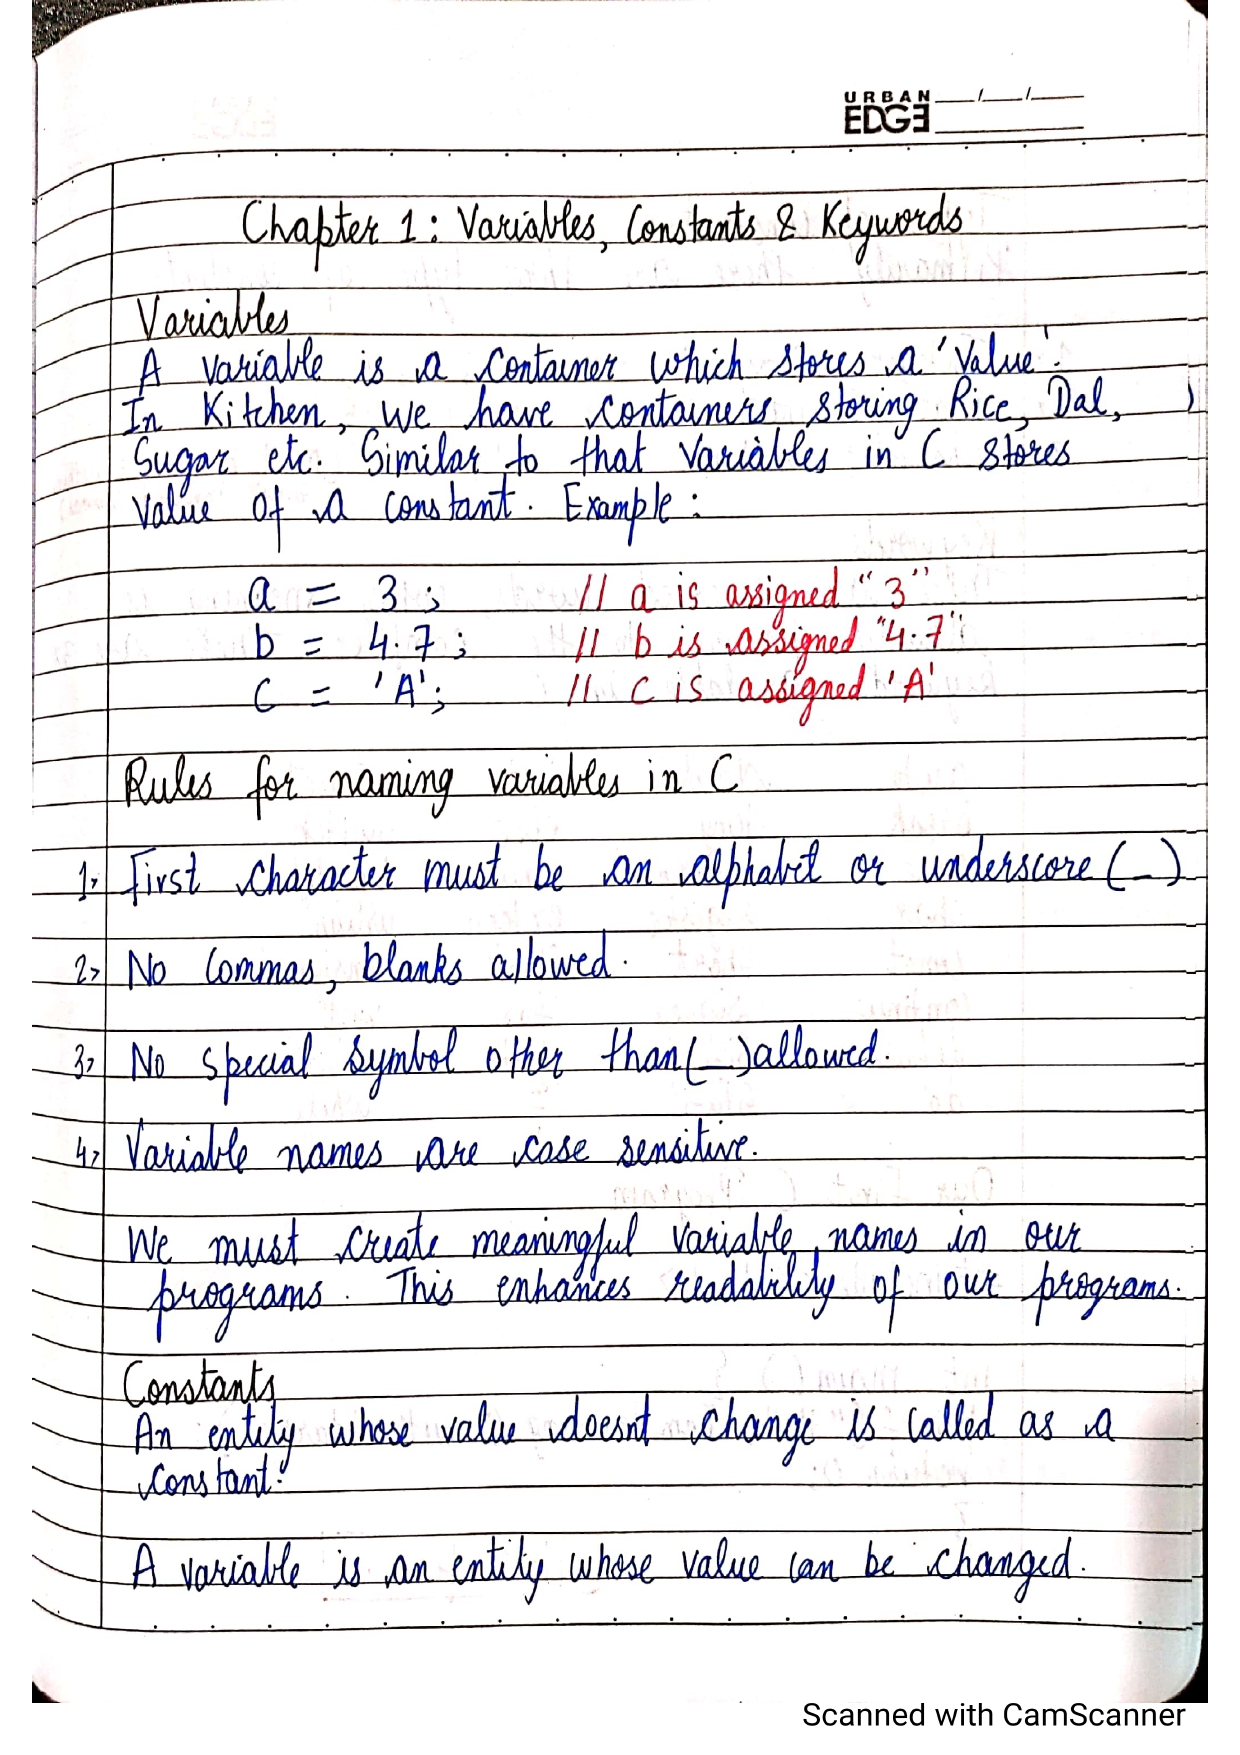 URBAN
EDGE
Chapter 1: Variables, Constants & Keywords
Variables
A variable is a container which stores a 'Value'.
In Kitchen, we have containers storing Rice, Dal,
Sugar etc. Similar to that Variables in C stores
Value of a constant. Example:
a = 3; // a is assigned "3"
b = 4.7; // b is assigned "4.7"
C = 'A'; // C is assigned 'A'
Rules for naming variables in C
1> First character must be an alphabet or underscore (_)
2> No Commas, blanks allowed.
3> No special symbol other than (_) allowed.
4> Variable names are case sensitive.
We must create meaningful variable names in our
programs. This enhances readability of our programs.
Constants
An entity whose value doesnt change is called as a
constant.
A variable is an entity whose value can be changed.
Scanned with CamScanner